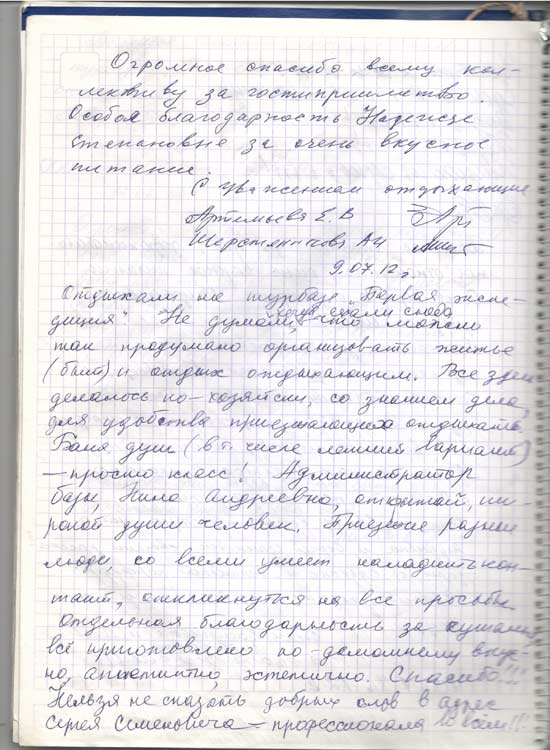 Огромное спасибо всему кол-
лективу за гостеприимство.
Особая благодарность Надежде
Степановне за очень вкусное
питание.
С уважением отдыхающие
Артемьева Е.В
Шерстянникова АИ
9.07.12г
Отдыхали на турбазе "Первая экспе-
диция". Не думали, когда ехали сюда
что можно
так продумано организовать житье
(быт) и отдых отдыхающим. Все здесь
делалось по-хозяйски, со знанием дела,
для удобства приезжающих отдыхать.
Баня, душ (в т. числе летний вариант)
- просто класс! Администратор
базы, Нина Андреевна, открытой, ши-
рокой души человек. Приезжие разные
люди, со всеми умеет наладить кон-
такт, откликнуться на все просьбы
Отдельная благодарность за кушания,
всё приготовлено по-домашнему вкус-
но, аппетитно, эстетично. Спасибо!!!
Нельзя не сказать добрых слов в адрес
Сергея Семеновича - профессионала во всём!!